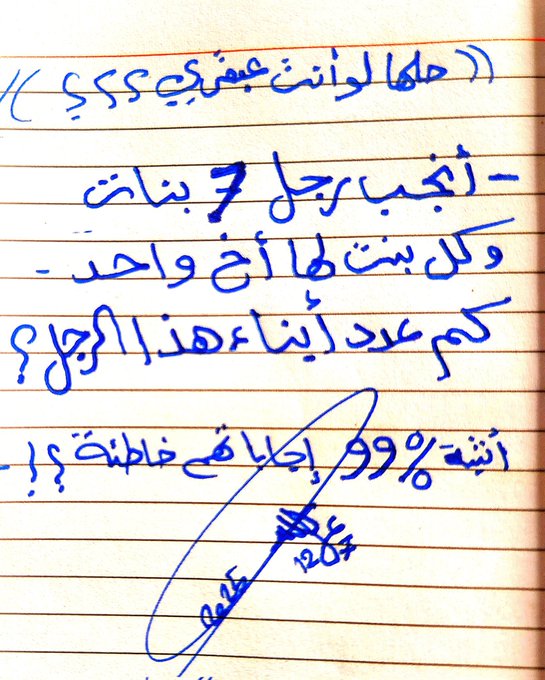 ((حلها لو أنت عبقري ؟؟؟؟))
- أنجب رجل 7 بنات
وكل بنت لها أخ واحد -
كم عدد أبناء هذا الرجل؟
99% إجاباتهم خاطئة ؟!-
12 07
2025